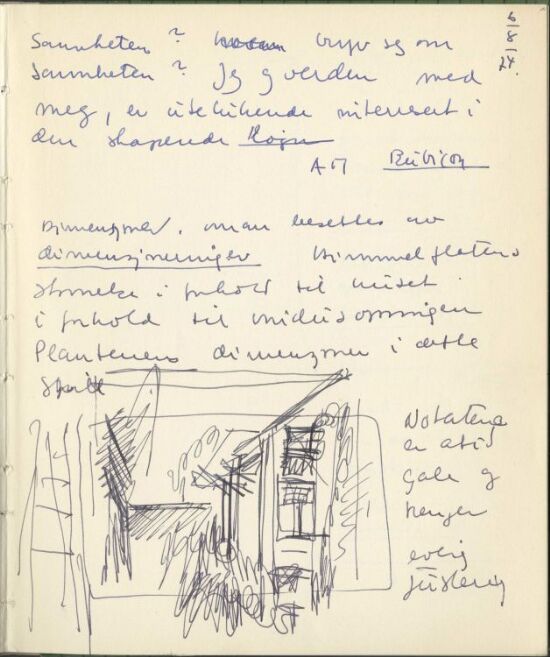 6
8
24.
Sannheten? bryr seg om
Sannheten? Jeg og verden med
meg, er utelukkende interesert i
den skapende Løgn
AM Rubicon
Dimensjoner, man besettes av
dimensjoneringer Himmelflatens
størrelse i forhold til huset
i forhold til vindusåpningen
Plantenens dimensjoner i dette
Spill
Notatene
er altid
gale og
trenger
evig
justering